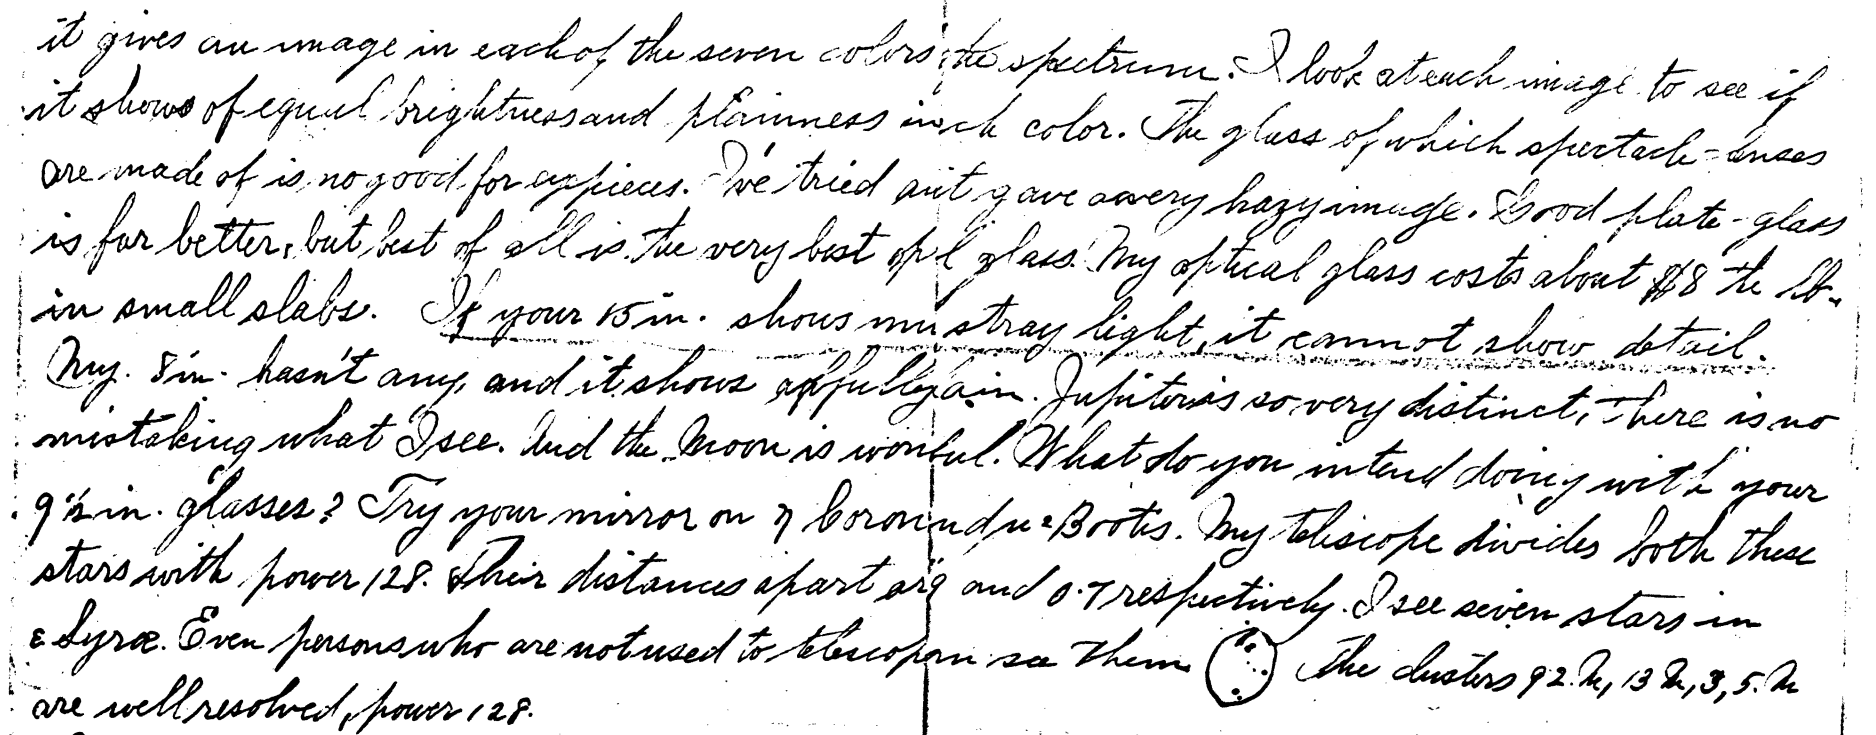 it gives an image in each of the seven colors the spectrum. I look at each image to see if
it shows of equal brightness and plainness in color. The glass of which spectacle-lenses
are made of is no good for eyepieces. I've tried it gave a very hazy image. Good plate-glass
is far better, but best of all is the very best glass. My optical glass costs about $8 the lb.
in small slabs. If your 15 in. shows stray light, it cannot show detail.
My. 8 in. hasn't any, and it shows . Jupiter is so very distinct, There is no
mistaking what I see. And the Moon is . What do you intend doing with your
9½ in. glasses? Try your mirror on η Bootis. My telescope divides both these
stars with power 128. Their distances apart and 0.7 respectively. I see seven stars in
ε Lyræ. Even persons who are not used to see them The clusters 92.M, 13 M, 3, 5.M
are well resolved, power 128.